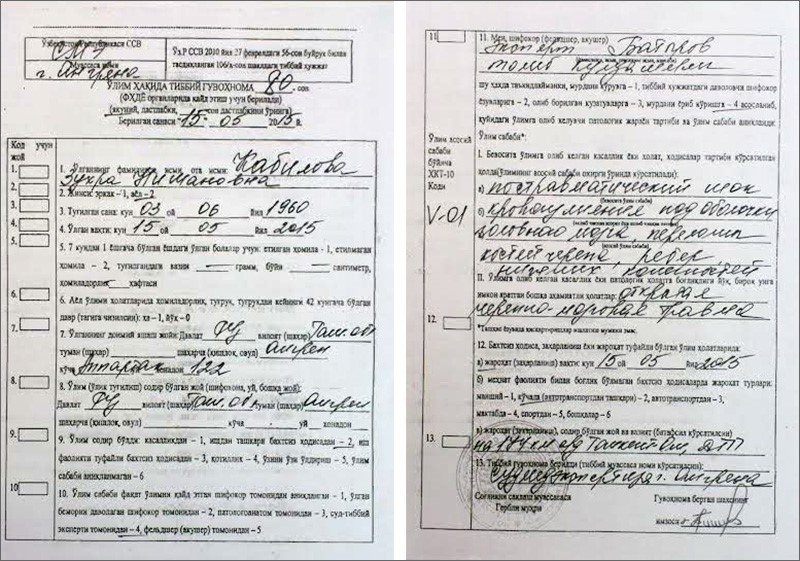 Ўзбекистон Республикаси ССВ
СМЭ
Муассаса номи
г. Ангрена
ЎзР ССВ 2010 йил 27 февралдаги 56-сон буйруқ билан
тасдиқланган 106/х-сон шаклдаги тиббий ҳужжат
ЎЛИМ ҲАҚИДА ТИББИЙ ГУВОҲНОМА 80 - сон
(ФҲДЁ органларига қайд этиш учун берилади)
(якуний, дастлабки, -сон дастлабкини ўрнига)
Берилган санаси "15- 05 2015 й.
Код учун жой
1. 1. Ўлганнинг фамилияси, исми, ота исми Кабилова
Зухра Нигмановна
2. 2. Жинси: эркак – 1, аёл – 2
3. 3. Туғилган сана: кун 03 ой 06 йил 1960
4. 4. Ўлган вақти: кун 15 ой 05 2015
5. 5. 7 кундан 1 ёшгача бўлган ёшдаги ўлган болалар учун: етилган ҳомила - 1, етилмаган
ҳомила – 2, туғилгандаги вазни грамм, бўйи сантиметр,
ҳомиладорлик ҳафтаси
6. 6. Аёл ўлими ҳолатларида ҳомиладорлик, туғруқ, туғруқдан кейинги 42 кунгача бўлган
давр (тагига чизилсин): ха – 1, йўқ – 0
7. 7. Ўлганнинг доимий яшаш жойи: Давлат РУ вилоят (шаҳар) Таш. об
туман (шаҳар) шаҳарча (қишлоқ, овул) Ангрен
кўча хонадон 122
8. 8. Ўлим (ўлик туғилиш) содир бўлган жой (шифохона, уй, бошқа жой):
Давлат РУ вилоят (шаҳар) Таш. об туман (шаҳар) Ангрен
шаҳарча (қишлоқ, овул) кўча уй хонадон
9. 9. Ўлим содир бўлди: касалликдан – 1, ишдан ташқари бахтсиз ҳодисадан – 2, иш
фаолияти туфайли бахтсиз ҳодисадан – 3, қотиллик – 4, ўзини ўзи ўлдириш – 5, ўлим
сабаби аниқланмаган – 6
10 10. Ўлим сабаби фақат ўлимни қайд этган шифокор томонидан аниқланган – 1, ўлган
беморни даволаган шифокор томонидан – 2, патологоанатом томонидан – 3, суд-тиббий
эксперти томонидан – 4, фельдшер (акушер) томонидан – 5
11 11. Мен, шифокор (фельдшер, акушер)
эксперт
шу ҳақда таъкидлайманки, мурдани кўрувга – 1, тиббий ҳужжатдаги даволовчи шифокор
ёзувларига – 2, олиб борилган кузатувларга – 3, мурдани ёриб кўришга – 4 асосланиб,
қуйидаги ўлимга олиб келувчи патология жараён тартиби ва ўлим сабаби аниқланди:
Ўлим асосий
сабаби
бўйича
ХКТ-10
Коди
V-01
Ўлим сабаби*:
I. Бевосита ўлимга олиб келган касаллик ёки ҳолат, ҳодисалар тартиби кўрсатилган
ҳолда (ўлимнинг асосий сабаби охирги ўринда кўрсатилади):
а) посттравматический шок
б) кровоизлияние под оболочки
головного мозга, переломы
костей черепа, ребер
нижних конечностей
II. Ўлимга олиб келган касаллик ёки патологик ҳолатга боғлиқлиги йўқ, бироқ унга
имкон яратган бошқа аҳамиятли ҳолатлар: открытая
черепно-мозговая травма
12. 12. Бахтсиз ҳодиса, заҳарланиш ёки жароҳат туфайли бўлган ўлим ҳолатларида:
а) жароҳат (заҳарланиш) вақти: кун 15 ой 05 йил 2015
б) меҳнат фаолияти билан боғлиқ бўлмаган бахтсиз ҳодисаларда жароҳат турлари:
маиший – 1, кўчада (автотранспортдан ташқари) – 2, автотранспортдан – 3,
мактабда – 4, спортдан – 5, бошқалар – 6
в) жароҳат (заҳарланиш), содир бўлган жой ва вазият (батафсил кўрсатилсин)
13. на км а/д Ташкент-Ош, ДТП
13. Тиббий гувоҳнома берилди (тиббий муассаса номи кўрсатилсин):
г. Ангрена
Соғлиқни сақлаш муассасаси
Гербли муҳри
Гувоҳнома берган шахснинг
имзоси